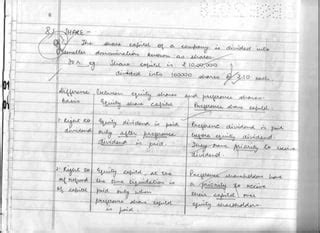 8) SHARE:-
The share capital of a company is divided into
smaller denomination known as shares
For eg Share capital is ₹ 10,00,000
divided into 100000 shares @ ₹10 each.
difference between equity shares and preference shares-
basis Equity share capital Preference share capital
1. Right to Equity dividend is paid Preference dividend is paid
dividend only after preference before equity dividend
dividend is paid They have priority to receive
dividend
2. Right Equity capital at the Preference shareholders have
of refund the time liquidation is a priority to receive
of capital paid only when their capital over
preference share capital equity shareholder.
is paid.